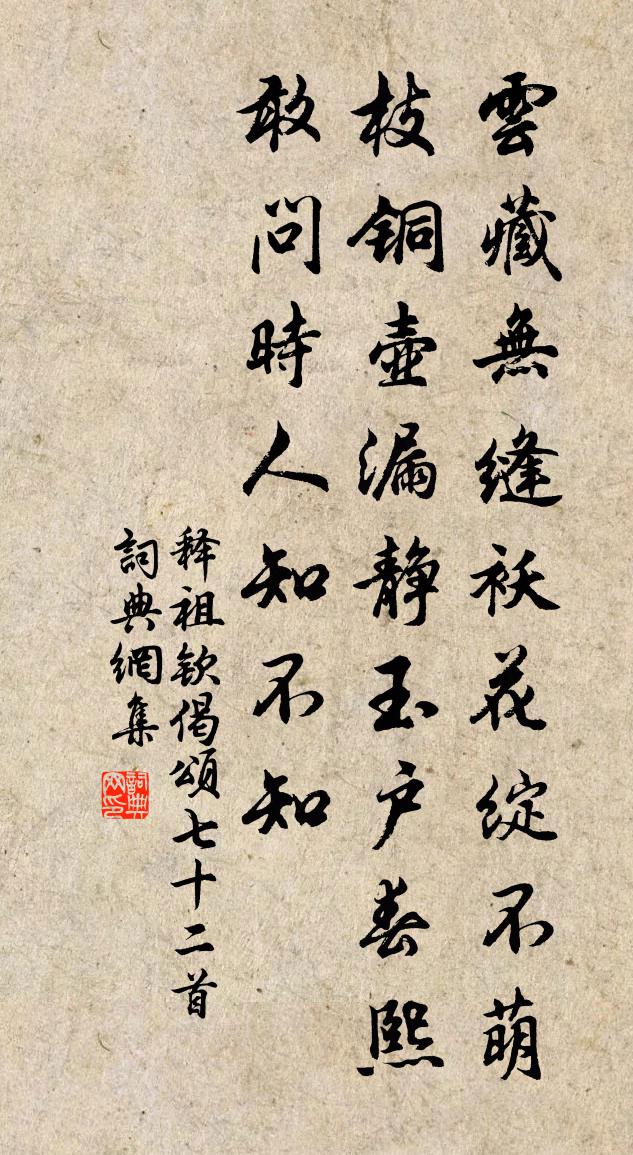 雲藏無縫袄花綻不萌
枝铜壺漏静玉户春熙
敢問時人知不知
释祖钦偈頌七十二首
詞典網集
詞典网印